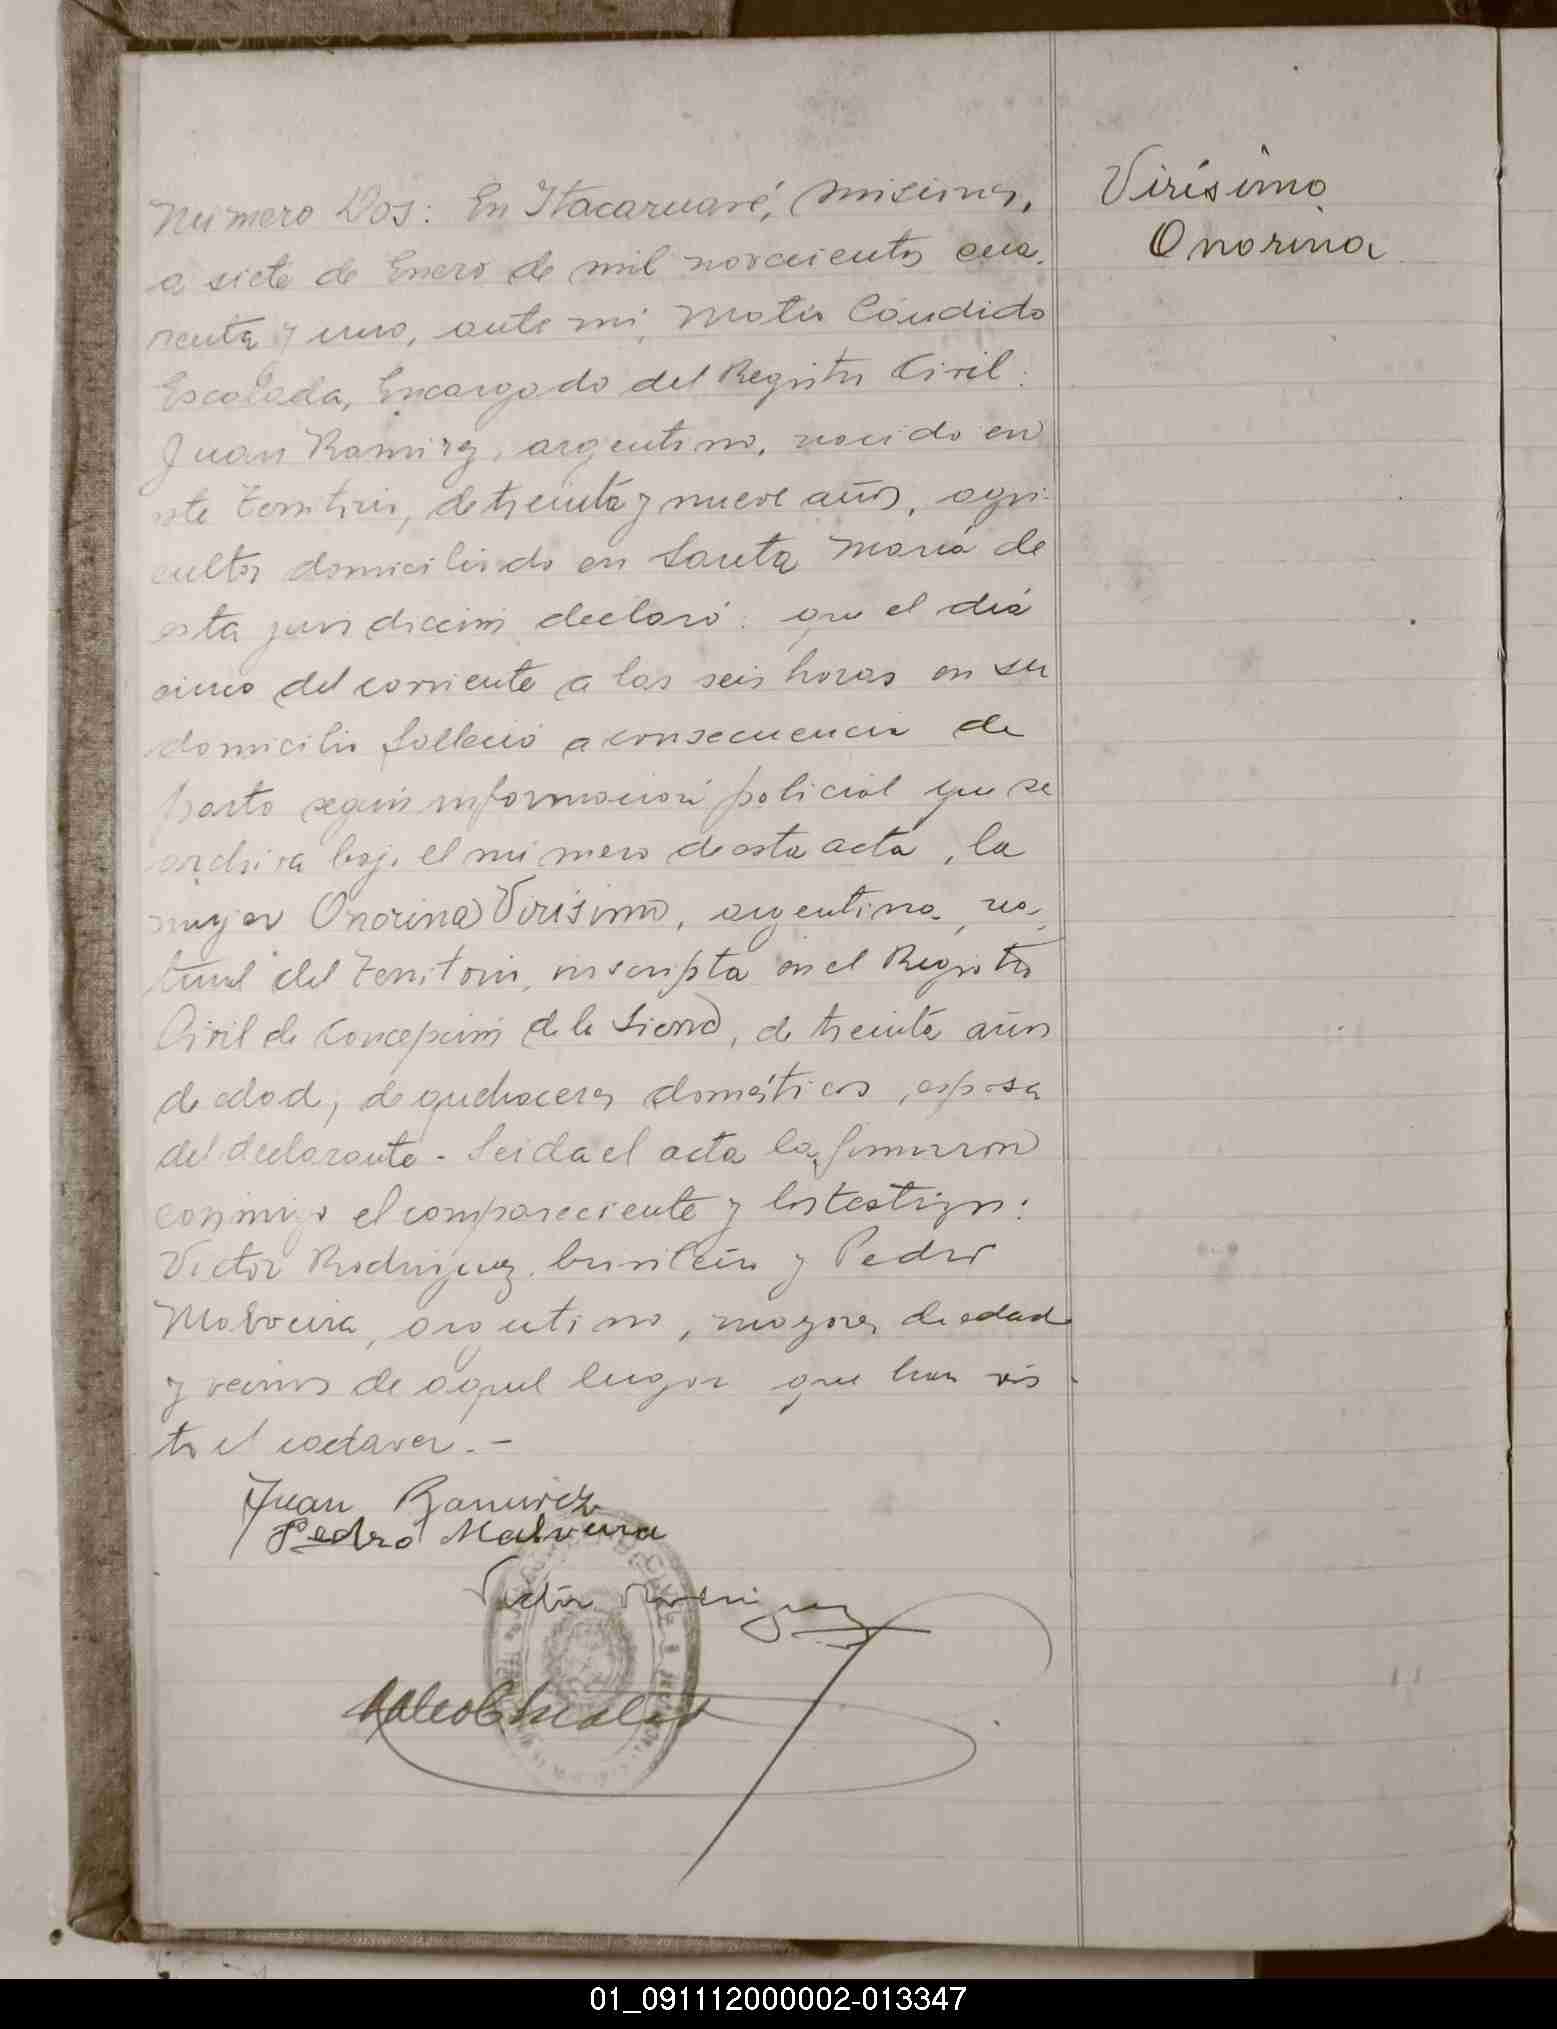 Número Dos: En Itacaruaré, Misiones,
a siete de Enero de mil novecientos cua-
renta y uno, ante mi, Mateo Cándido
Escalada, Encargado del Registro Civil:
Juan Ramirez, argentino, nacido en
este Territorio, de treinta y nueve años, agri-
cultor domiciliado en Santa María de
esta jurisdiccion declaró: que el día
cinco del corriente a las seis horas en su
domicilio falleció a consecuencia de
parto según informacion policial que se
archiva bajo el número de esta acta, la
mujer Onorina Virísimo, argentina, na-
tural del Territorio, inscripta en el Registro
Civil de Concepción de la Sierra, de treinta años
de edad, de quehaceres domésticos, esposa
del declarante - Leida el acta la firmaron
conmigo el compareciente y los testigos:
Victor Rodriguez, brasilero y Pedro
Malveira, argentino, mayores de edad
y vecinos de aquel lugar que han vis
to el cadaver. -
Juan Ramirez
Pedro Malveira
Victor Rodriguez
Virísimo
Onorina
01_091112000002-013347